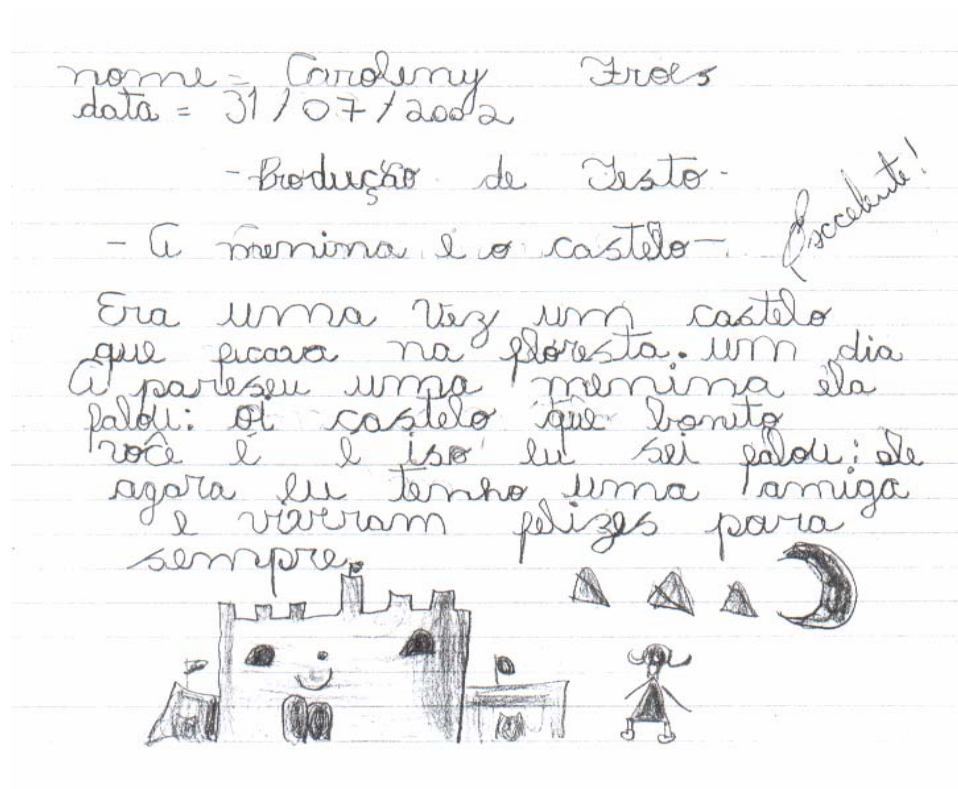 nome = Caroliny Froes
data = 31/07/2002
- Produção de Testo -
Excelente!
- A menina e o castelo -
Era uma vez um castelo
que ficava na floresta. um dia
A pareseu uma menina ela
falou: oi castelo que bonito
você é e iso eu sei falou: ele
agora eu tenho uma amiga
e viverram felizes para
sempre.